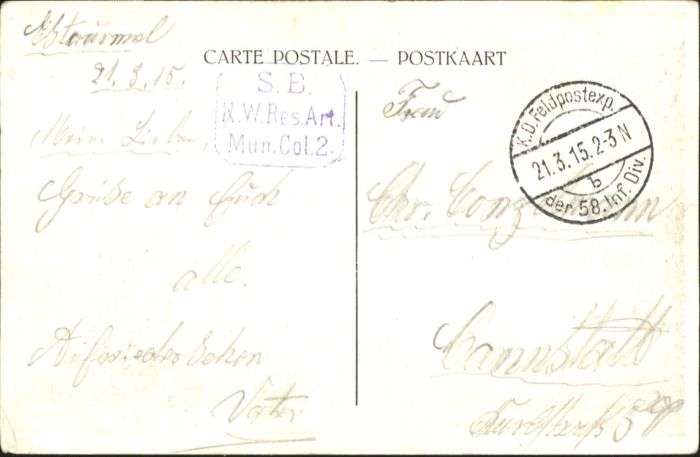 21.3.15.
CARTE POSTALE. — POSTKAART
S.B.
K.W.Res.Art.
Mun.Col.2.
Meine Lieben,
Grüße an Euch
alle.
Aufwiedersehen
Vater
Frau
K.D.Feldpostexp.
21.3.15.2-3N
b
der 58.Inf.Div.
Chr.
Cannstatt